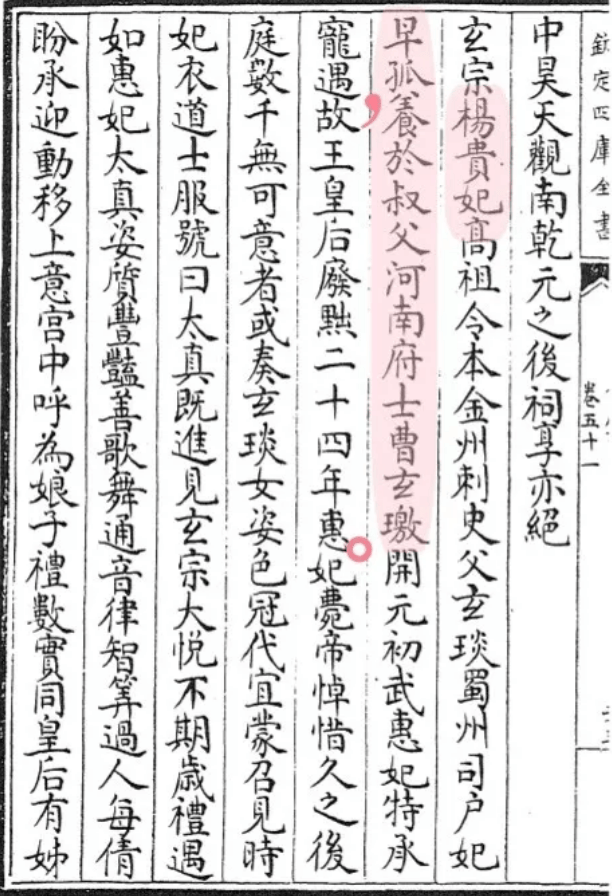 欽定四庫全書
卷五十一
中昊天觀南乾元之後祠享亦絕
玄宗楊貴妃高祖令本金州刺史父玄琰蜀州司户妃
早孤養於叔父河南府士曹玄璬開元初武惠妃特承
寵遇故王皇后廢黜二十四年惠妃薨帝悼惜久之後
庭數千無可意者或奏玄琰女姿色冠代宜蒙召見時
妃衣道士服號曰太真既進見玄宗大悅不期歲禮遇
如惠妃太真姿質豐豔善歌舞通音律智筭過人每倩
盼承迎動移上意宮中呼為娘子禮數實同皇后有姊